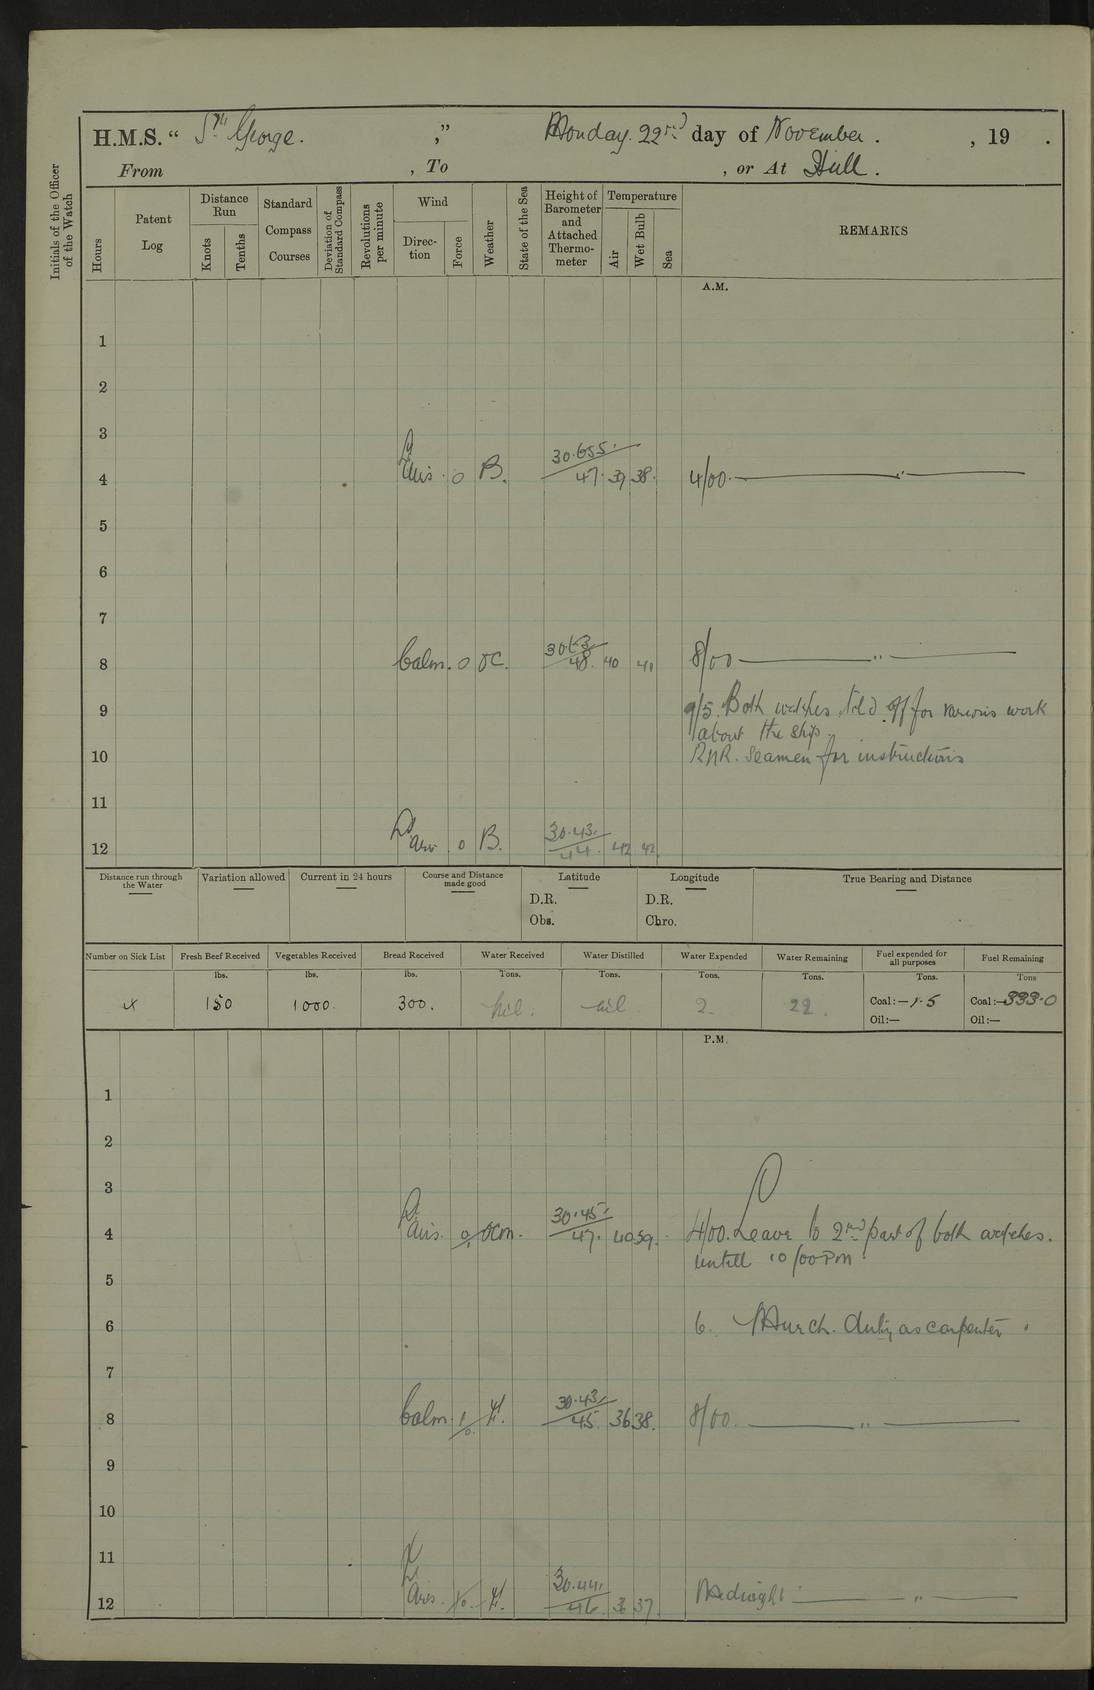 H.M.S. “ St. George. ,” Monday. 22nd day of November . , 19 .
From , To , or At Hull .
Initials of the Officer of the Watch
Hours
Patent Log
Distance Run
Knots Tenths
Standard Compass Courses
Deviation of Standard Compass
Revolutions per minute
Wind
Direction Force
Weather
State of the Sea
Height of Barometer and Attached Thermometer
Temperature
Air Wet Bulb Sea
REMARKS
A.M.
1
2
3
30.655.
4 airs. 0 B. 47. 39 38. 4/00. — „ —
5
6
7
8 Calm. 0 OC. 48. 40 41 8/00 — „ —
9 9/5. Both watches told off for various work
about the ship.
10 RNR. Seamen for instructions
11
30.43.
12 0 B. 44. 42 42.
Distance run through the Water
Variation allowed
Current in 24 hours
Course and Distance made good
Latitude
D.R.
Obs.
Longitude
D.R.
Chro.
True Bearing and Distance
Number on Sick List Fresh Beef Received Vegetables Received Bread Received Water Received Water Distilled Water Expended Water Remaining Fuel expended for all purposes Fuel Remaining
lbs. lbs. lbs. Tons. Tons. Tons. Tons. Tons. Tons
150 1000. 300. nil. nil 2. 22. Coal:— 1.5 Coal:— 333.0
Oil:— Oil:—
P.M.
1
2
3
30.45.
4 airs. 47. 40 39. 4/00. Leave to 2nd part of both watches.
untill 10/00 PM
5
6 6. March. duty as carpenter .
7
30.43.
8 Calm. 45. 36 38. 8/00. — „ —
9
10
11
30.44.
12 airs. 46. 36 37. Midnight — „ —